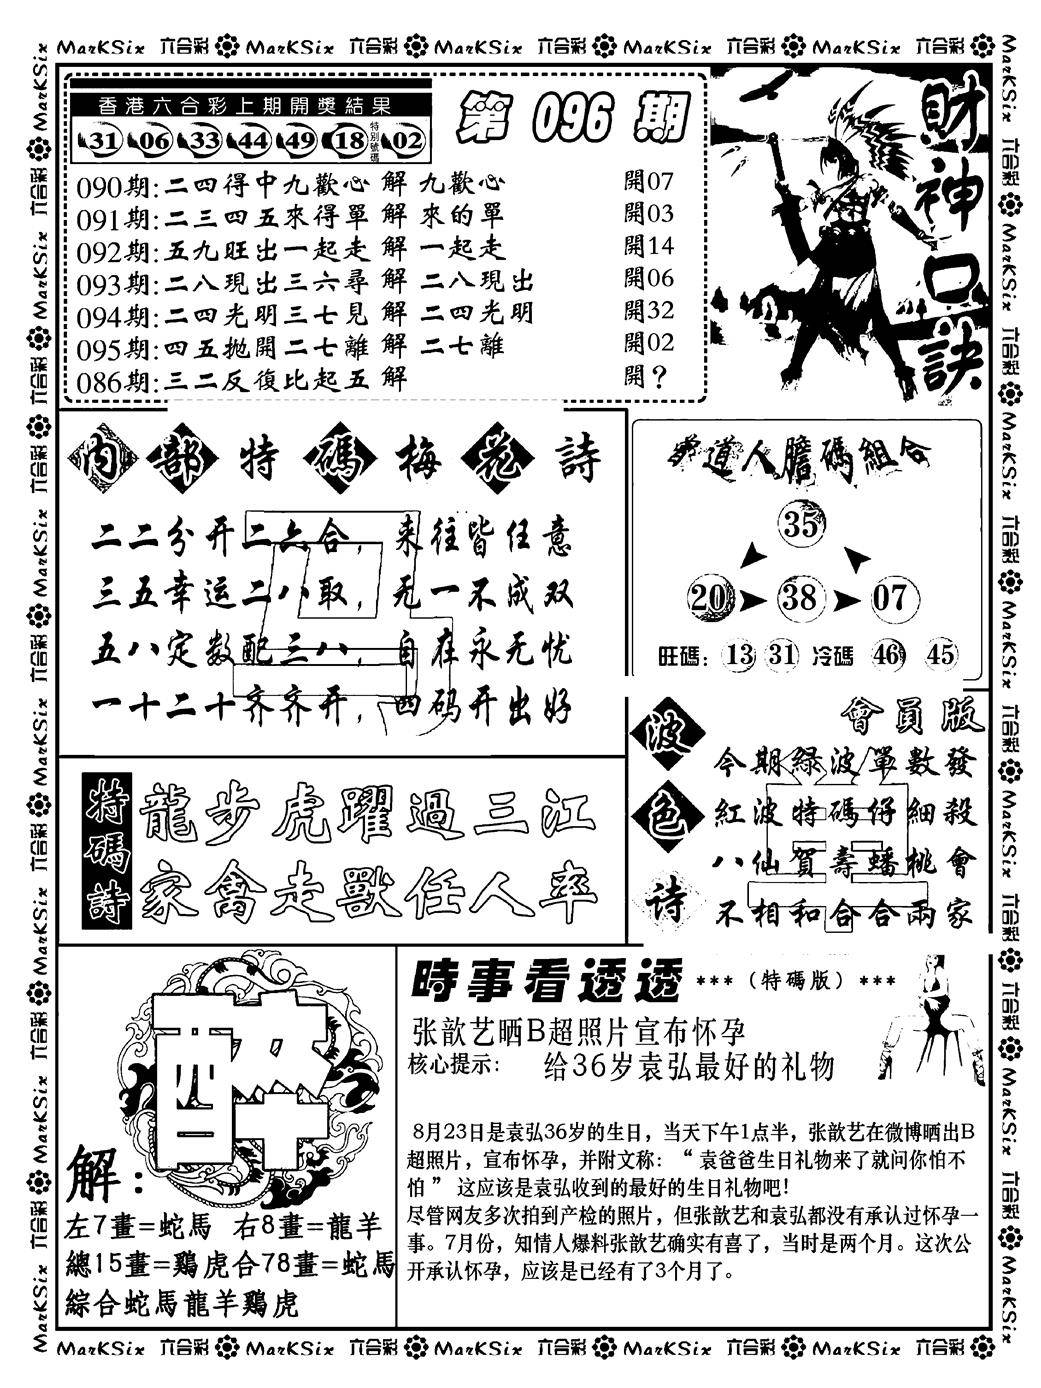 MarKSix 六合彩 MarKSix 六合彩 MarKSix 六合彩 MarKSix 六合彩 MarKSix 六合彩
香港六合彩上期開獎結果
31 06 33 44 49 18 特別號碼 02
第 096 期
090期:二四得中九歡心 解 九歡心 開07
091期:二三四五來得單 解 來的單 開03
092期:五九旺出一起走 解 一起走 開14
093期:二八現出三六尋 解 二八現出 開06
094期:二四光明三七見 解 二四光明 開32
095期:四五抛開二七離 解 二七離 開02
086期:三二反復比起五 解 開？
財神口訣
内部特碼梅花詩
二二分开二六合，来往皆任意
三五幸运二八取，无一不成双
五八定数配三八，自在永无忧
一十二十齐齐开，四码开出好
道人膽碼組合
35
20 38 07
旺碼：13 31 冷碼 46 45
特碼詩
龍步虎躍過三江
家禽走獸任人率
波色诗
會員版
今期綠波單數發
紅波特碼仔細殺
八仙賀壽蟠桃會
不相和合合兩家
醉
解：
左7畫=蛇馬 右8畫=龍羊
總15畫=鷄虎合78畫=蛇馬
綜合蛇馬龍羊鷄虎
時事看透透 ***（特碼版）***
张歆艺晒B超照片宣布怀孕
核心提示： 给36岁袁弘最好的礼物
8月23日是袁弘36岁的生日，当天下午1点半，张歆艺在微博晒出B
超照片，宣布怀孕，并附文称：“ 袁爸爸生日礼物来了就问你怕不
怕 ” 这应该是袁弘收到的最好的生日礼物吧！
尽管网友多次拍到产检的照片，但张歆艺和袁弘都没有承认过怀孕一
事。7月份，知情人爆料张歆艺确实有喜了，当时是两个月。这次公
开承认怀孕，应该是已经有了3个月了。
MarKSix 六合彩 MarKSix 六合彩 MarKSix 六合彩 MarKSix 六合彩 MarKSix 六合彩